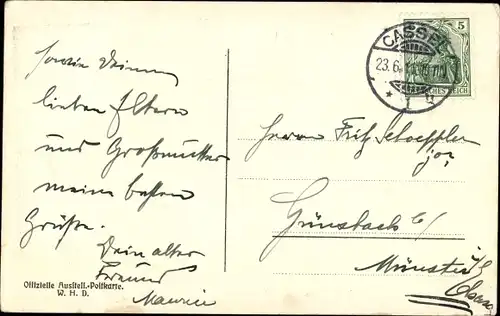 sowie Deinen
lieben Eltern
und Großmutter
meine besten
Grüße.
Dein alter
Freund
Maurice
Offizielle Ausstell.-Postkarte.
W. H. D.
CASSEL
23.6.
* 1
5
REICH
Herrn Fritz Schoepfler
jor
Günsbach b/
Münster i/E